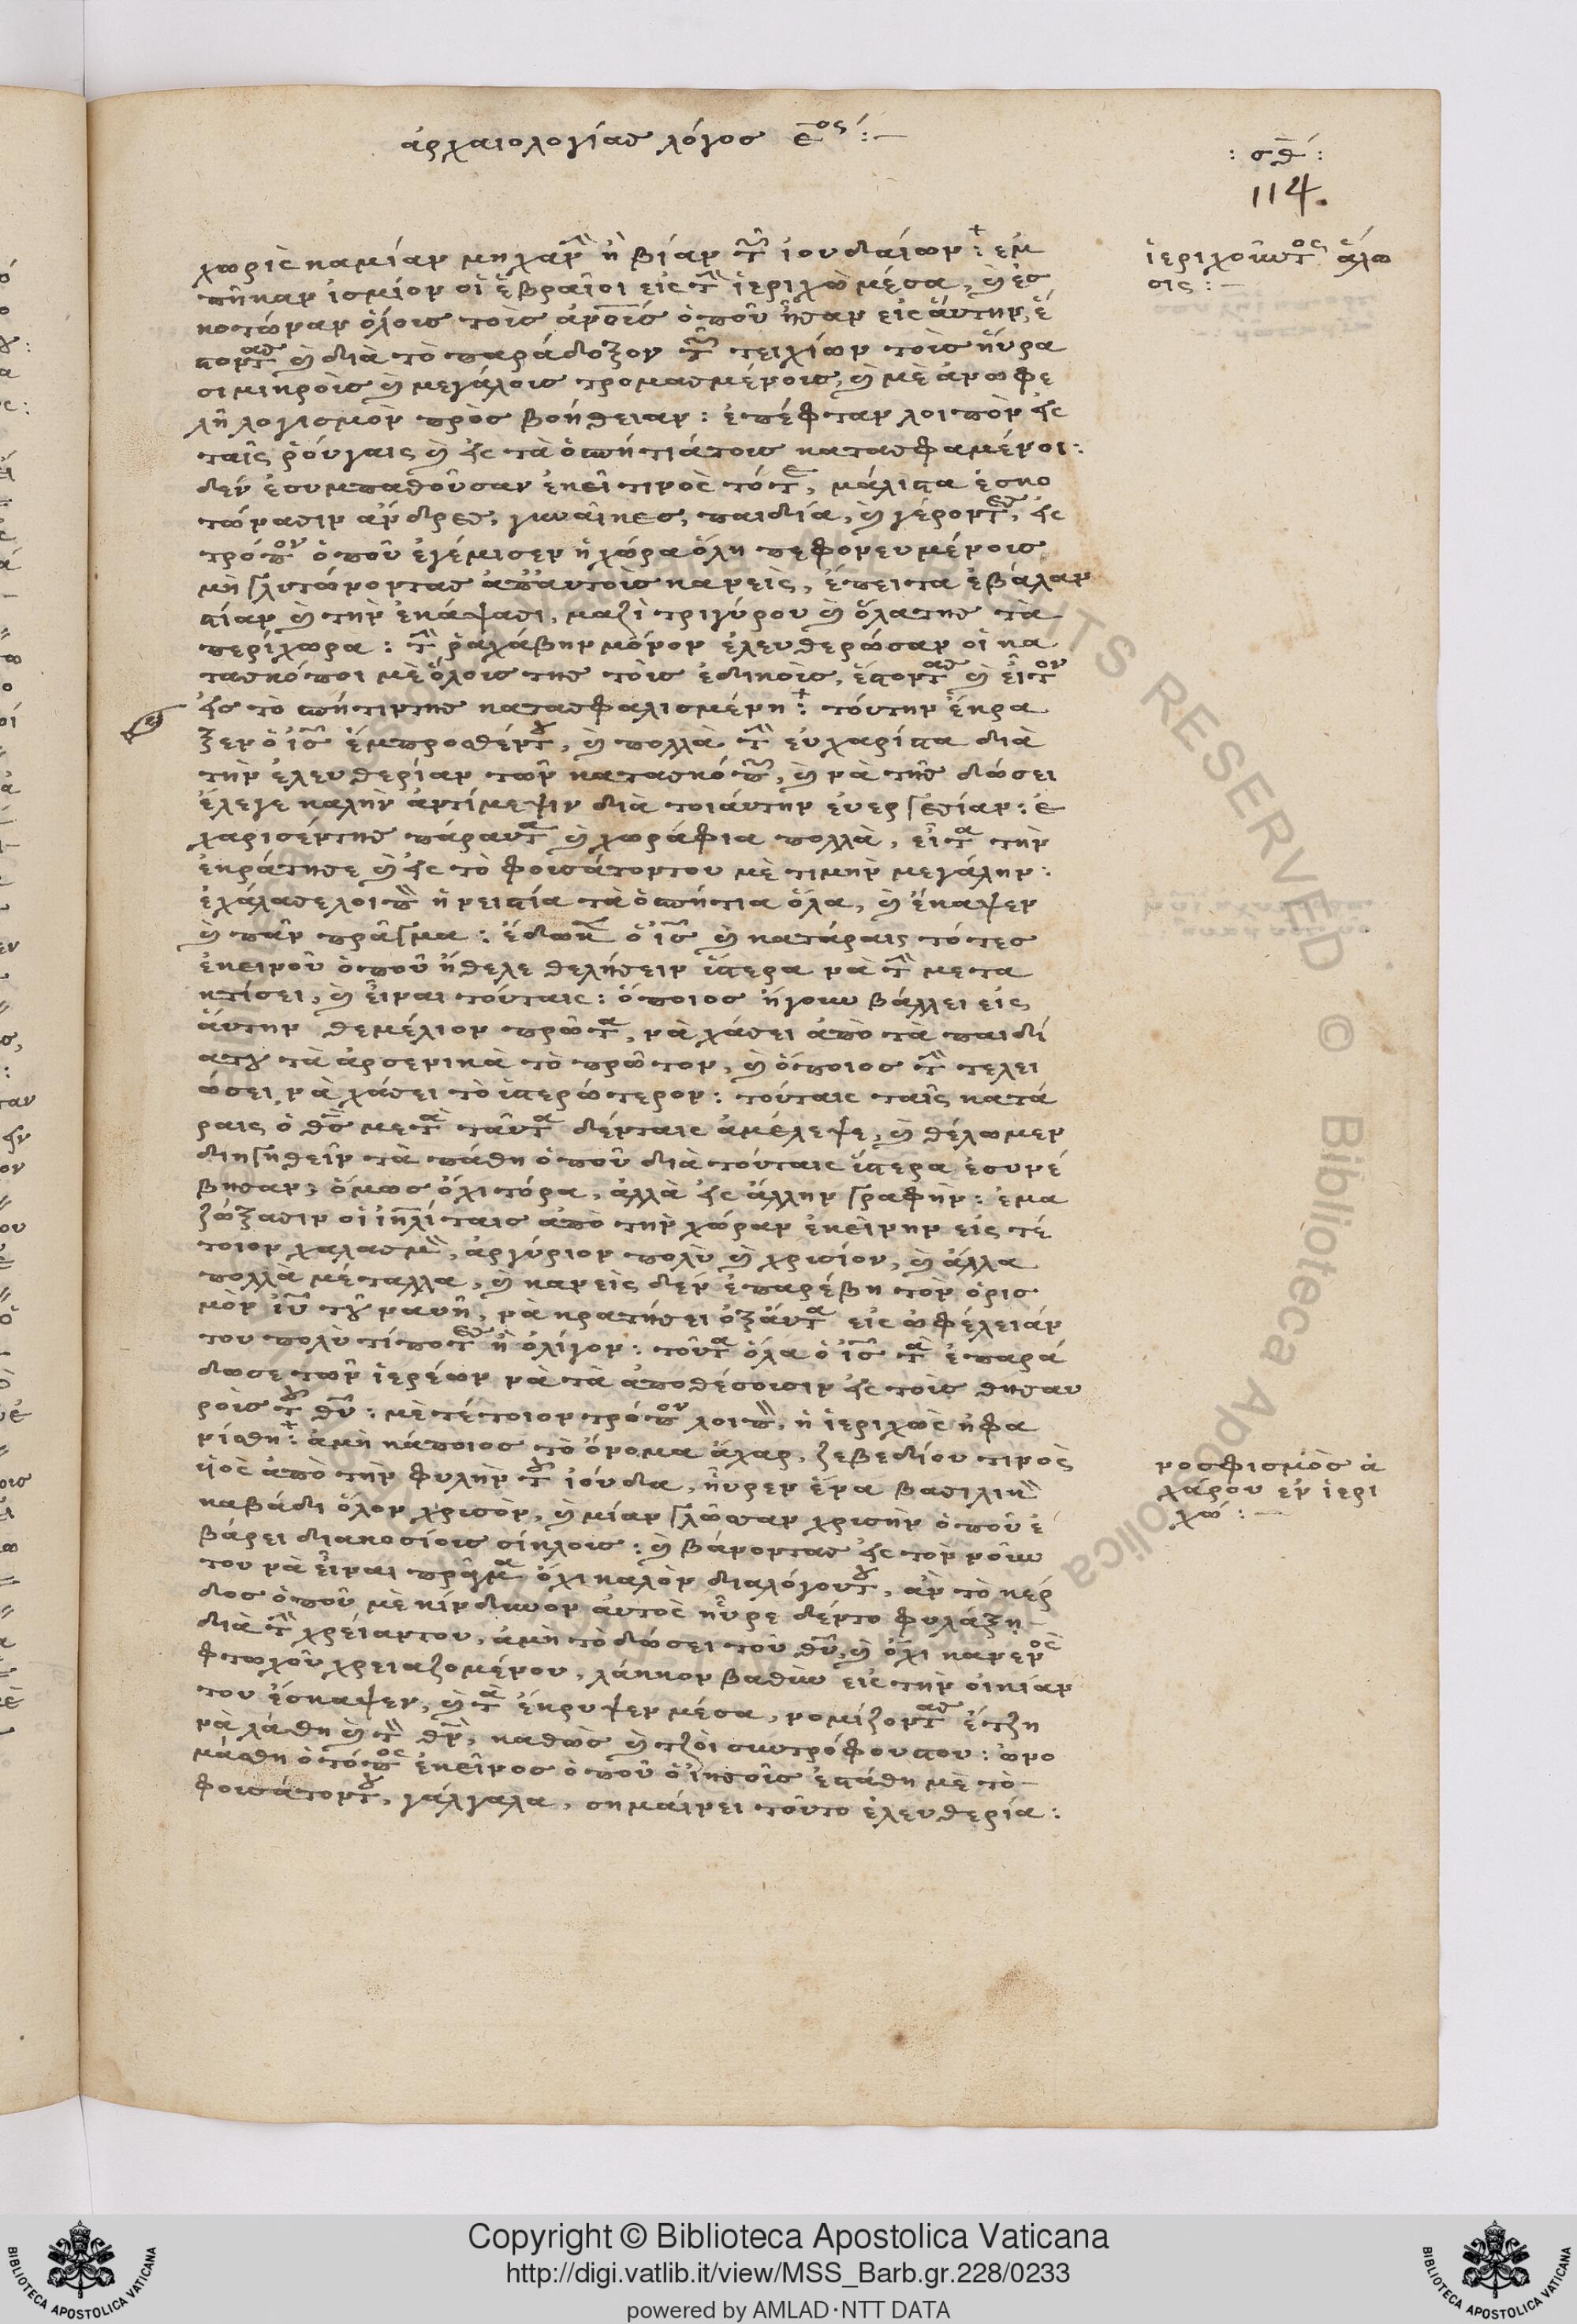 ἀρχαιολογίας λόγος ε^ος :—
: σθ :
114.
χωρὶς καμίαν μηχανὴν ἢ βίαν τῶν ἰουδαίων : ἐμ
πῆκαν ἰσμίον οἱ ἑβραῖοι εἰς τὴν ἱεριχὼ μέσα, καὶ ἐσ
κοτώναν ὅλοις τοῖς ἀνοῖς ὁποῦ ἦσαν εἰς αὐτὴν, ἔ
στοντας καὶ διὰ τὸ παράδοξον τῶν τειχίων τοῖς ηὕρα
σι μικροῖς καὶ μεγάλοις τρομασμένοις, καὶ μὲ ἀνωφε
λῆ λογισμὸν πρὸς βοήθειαν : ἐπέφταν λοιπὸν εἰς
ταῖς ῥούγαις καὶ εἰς τὰ ὁσπήτιάτοις κατασφαμένοι :
δὲν ἐσυμπαθοῦσαν ἐκεῖ τινὸς τότε, μάλιστα ἐσκο
τώνασιν ἄνδρες, γυναῖκες, παιδία, καὶ γέροντες, εἰς
τρόπον ὁποῦ ἐγέμισεν ἡ χώρα ὅλη πεφονευμένοις
μὴ γλυτώνοντας ἀπ' αὐτοῖς κανεὶς, ἔπειτα ἐβάλαν
στίαν καὶ τὴν ἐκάψασι, μαζὶ τριγύρου καὶ ὅλατης τὰ
περίχωρα : τὴν ῥαχάβην μόνον ἐλευθερώσαν οἱ κα
τασκόποι μὲ ὅλοις της τοῖς ἐδικοῖς, ἔστοντας καὶ εἶτον
εἰς τὸ σπήτιντης κατασφαλισμένη : τούτην ἔκρα
ξεν ὁ ἰς ἔμπροσθέντου, καὶ πολλὰ τὴν εὐχαρίστα διὰ
τὴν ἐλευθερίαν τῶν κατασκόπων, καὶ νὰ τῆς δώσει
ἔλεγε καλὴν ἀντίμεψιν διὰ τοιαύτην εὐεργεσίαν : ἐ
χαρισέντης πάραυτα καὶ χωράφια πολλὰ, εἶτα τὴν
ἐκράτησε καὶ εἰς τὸ φουσάτοντου μὲ τιμὴν μεγάλην :
ἐχάλασε λοιπὸν ἡ κειστία τὰ ὁσπήτια ὅλα, καὶ ἔκαψεν
καὶ πᾶν πρᾶγμα : ἔδωκεν ὁ ἰς καὶ κατάραις τότες
ἐκεινοῦ ὁποῦ ἤθελε θελήσειν ὕστερα νὰ τὴν μετα
κτίσει, καὶ εἶναι τούταις : ὅποιος ἤγουν βάλλει εἰς
αὐτὴν θεμέλιον πρῶτα, νὰ χάσει ἀπὸ τὰ παιδί
ατου τὰ ἀρσενικὰ τὸ πρῶτον, καὶ ὅποιος τὴν τελει
ώσει, νὰ χάσει τὸ ὑστερώτερον : τούταις ταῖς κατά
ραις ὁ θς μετὰ ταῦτα δένταις ἀμέλεψε, καὶ θέλωμεν
διηγηθεῖν τὰ πάθη ὁποῦ διὰ τούταις ὕστερα ἐσυνέ
βησαν, ὅμως ὄχι τόρα, ἀλλὰ εἰς ἄλλην γραφὴν : ἐμα
ζώξασιν οἱ ἰηλίταις ἀπὸ τὴν χώραν ἐκείνην εἰς τέ
τοιον χαλασμὸν, ἀργύριον πολὺ καὶ χρισίον, καὶ ἄλλα
πολλὰ μέταλλα, καὶ κανεὶς δὲν ἐπαρέβη τὸν ὁρισ
μὸν ἰυ τοῦ ναυῆ, νὰ κρατήσει ὀξαύτα εἰς ὠφέλειάν
του πολὺ τίποτες ἢ ὀλίγον : τοῦτα ὅλα ὁ ἰς τὰ ἐπαρά
δωσε τῶν ἱερέων νὰ τὰ ἀποθέσουσιν εἰς τοῖς θησαυ
ροῖς τοῦ θυ : μὲ τέτοιον τρόπον λοιπὸν, ἡ ἱεριχὼς ἠφα
νίσθη : ἀμὴ κάποιος τὸ ὄνομα ἄχαρ, ζεβεδίου τινὸς
ὑιὸς ἀπὸ τὴν φυλὴν τοῦ ἰούδα, ηὗρεν ἕνα βασιλικὸν
καβάδι ὅλον χρισὸν, καὶ μίαν γλῶσσαν χρισὴν ὁποῦ ἐ
βάρει διακοσίοις σίκλοις : καὶ βάνοντας εἰς τὸν νοῦν
του νὰ εἶναι πρᾶγμα ὄχι καλὸν διαλόγουτου, ἂν τὸ κέρ
δος ὁποῦ μὲ κίνδυνον αὐτὸς ηὗρε δέντο φυλάξῃ
διὰ τὴν χρείαντου, ἀμὴ τὸ δώσει τοῦ θυ, καὶ ὄχι κανενὸς
φτωχοῦ χρειαζομένου, λάκκον βαθὺν εἰς τὴν οἰκίαν
του ἔσκαψεν, καὶ τὰ ἔκρυψεν μέσα, νομίζοντας ἔτζη
νὰ λάθη καὶ τὸν θν, καθὼς καὶ τζοὶ συντρόφουςτου : ὠνο
μάσθη ὁ τόπος ἐκεῖνος ὁποῦ ὁ ἰησοῦς ἐστάθη μὲ τὸ
φουσάτοντου, γάλγαλα, σημαίνει τοῦτο ἐλευθερία :
ἱεριχοῦντος ἅλω
σις :—
νοσφισμὸς ἀ
χάρου ἐν ἱερι
χώ :—
Copyright © Biblioteca Apostolica Vaticana
http://digi.vatlib.it/view/MSS_Barb.gr.228/0233
powered by AMLAD·NTT DATA